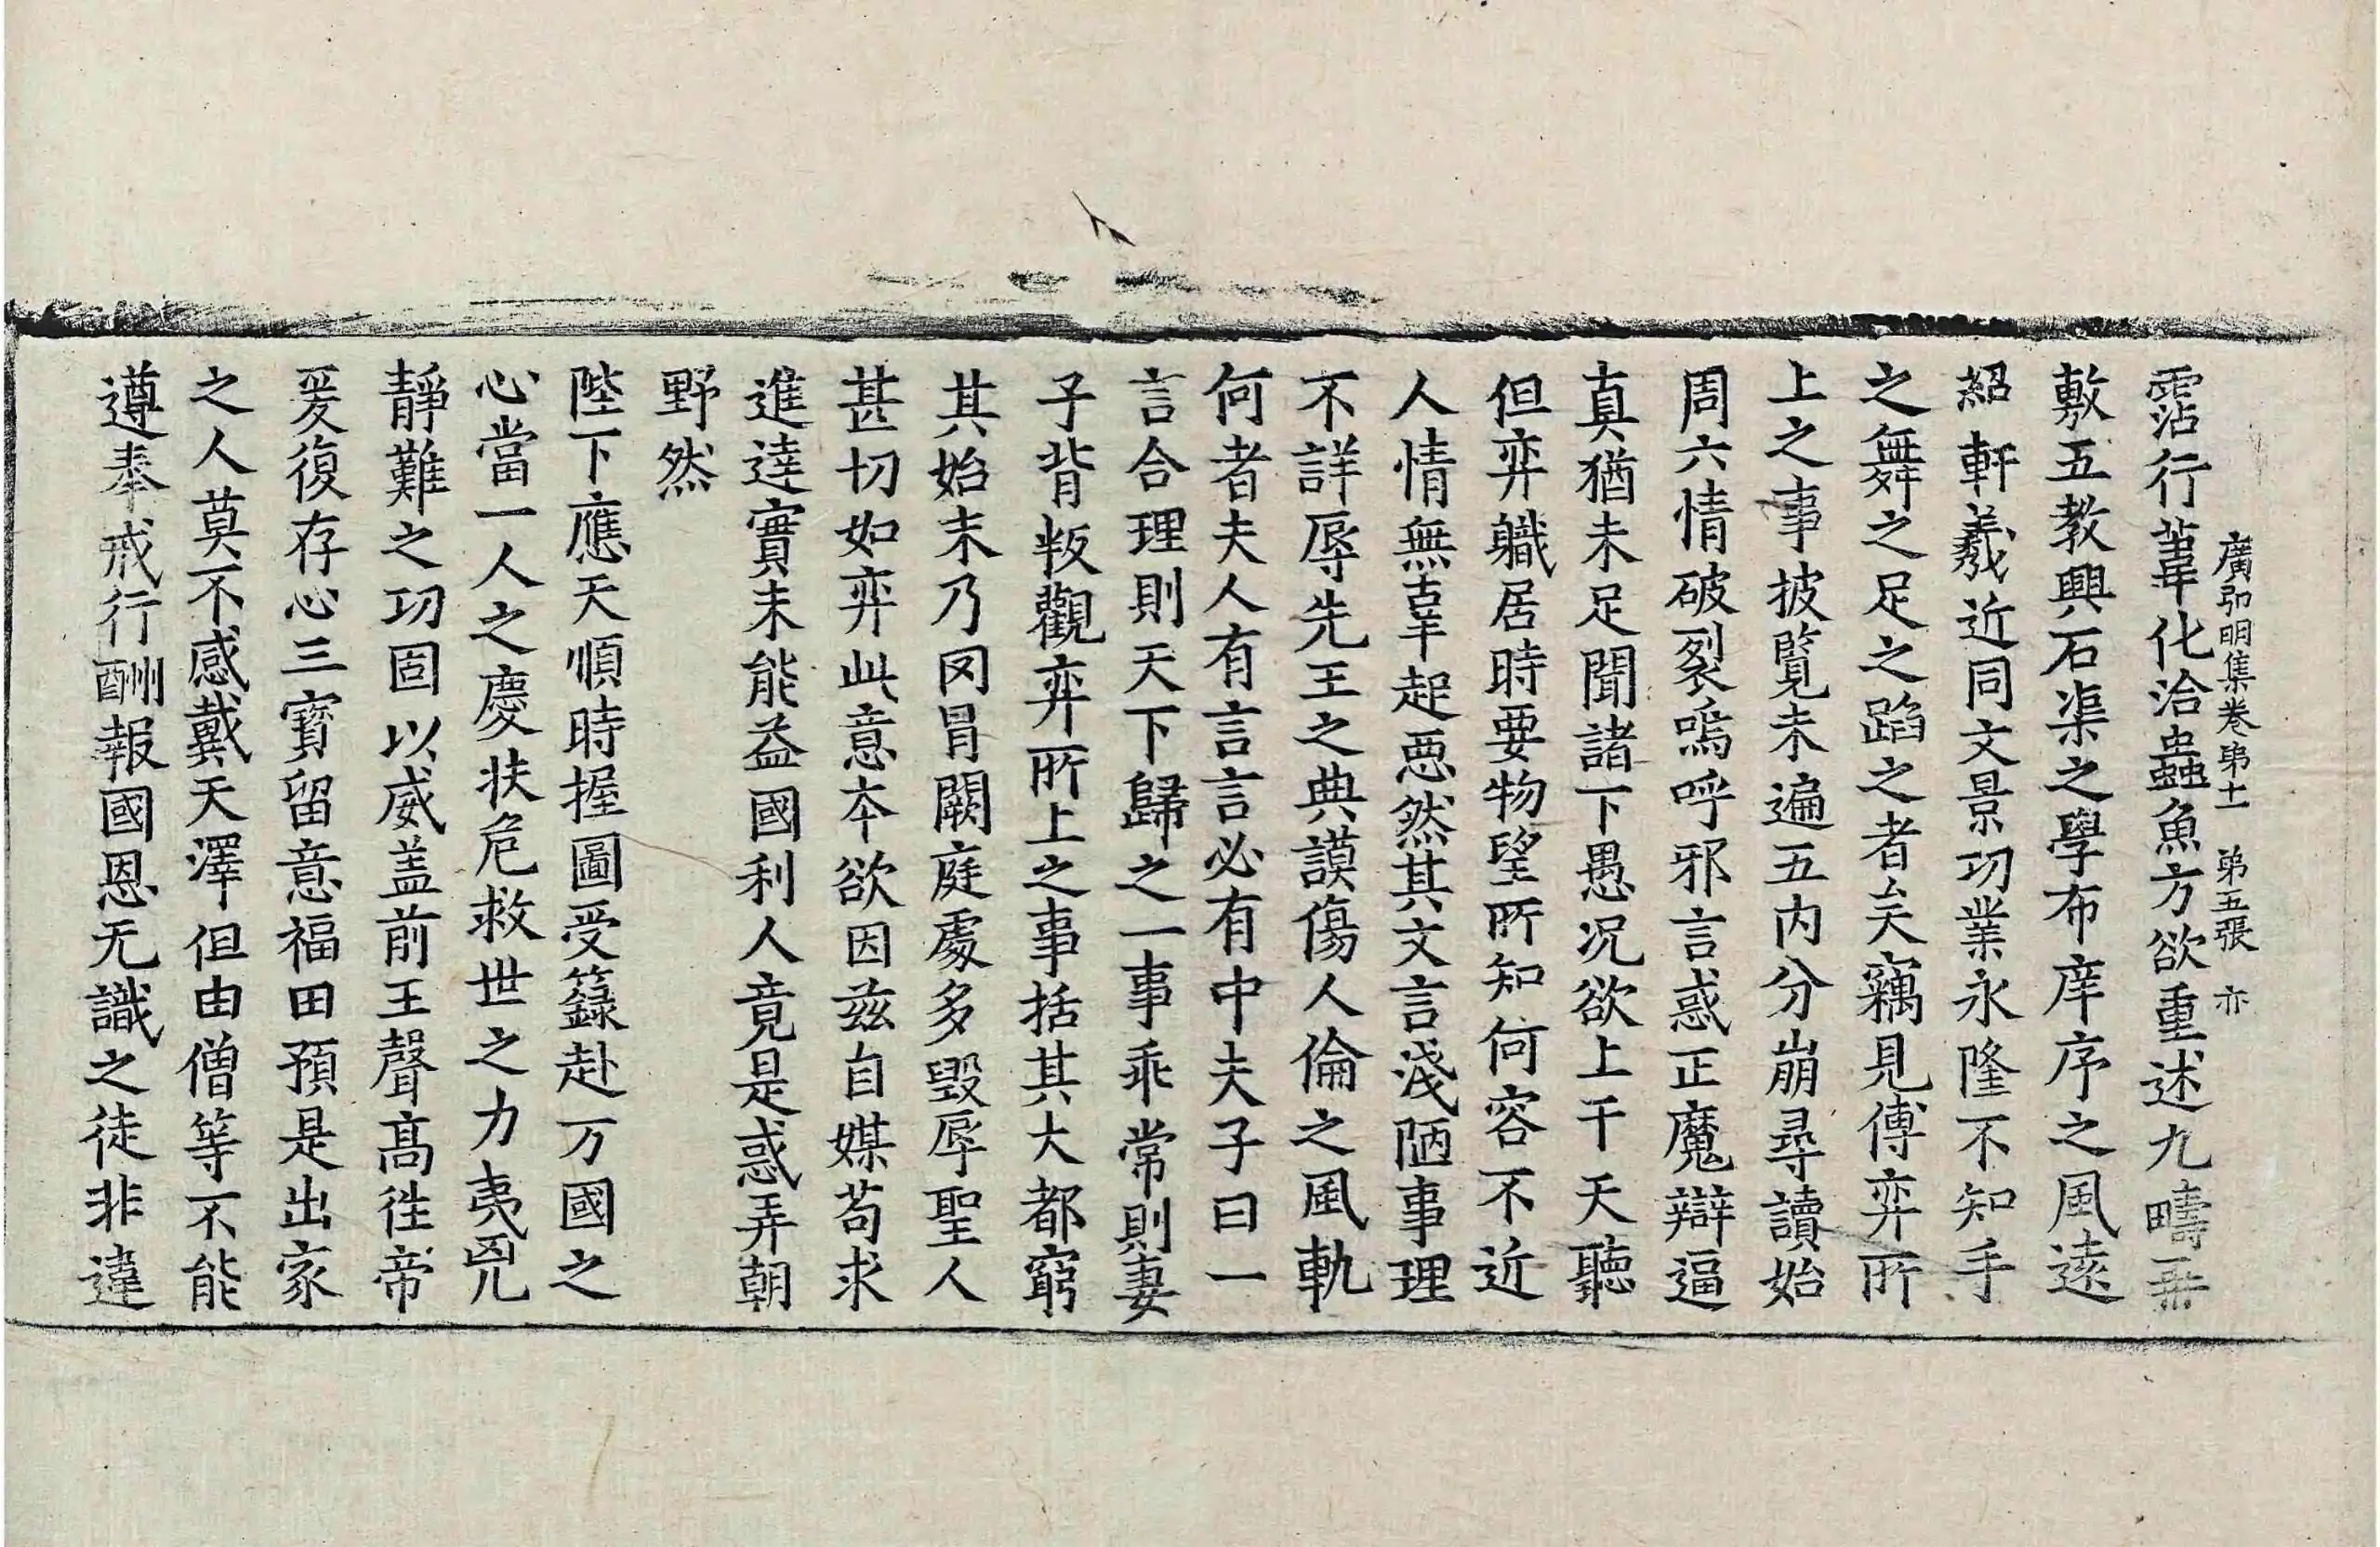 廣弘明集卷苐十一 苐五張 亦
霑行葦化洽蟲魚方欲重述九疇再
敷五教興石渠之學布庠序之風遠
紹軒羲近同文景功業永隆不知手
之舞之足之蹈之者矣竊見傅弈所
上之事披覧未遍五内分崩尋讀始
周六情破裂嗚呼邪言惑正魔辯逼
真猶未足聞諸下愚况欲上干天聽
但弈軄居時要物望所知何容不近
人情無辜起惡然其文言淺陋事理
不詳辱先王之典謨傷人倫之風軌
何者夫人有言言必有中夫子曰一
言合理則天下歸之一事乖常則妻
子背叛觀弈所上之事括其大都窮
其始末乃罔冒闕庭處多毀辱聖人
甚切如弈此意本欲因兹自媒苟求
進達實未能益國利人竟是惑弄朝
野然
陛下應天順時握圖受籙赴万國之
心當一人之慶扶危救世之力夷兇
靜難之功固以威盖前王聲髙往帝
爰復存心三寳留意福田預是出家
之人莫不感戴天澤但由僧等不能
遵奉戒行酬報國恩无識之徒非違